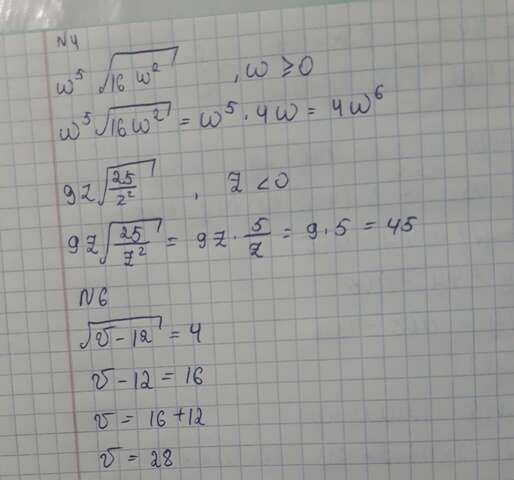 N4
w⁵ √16 w² , w ≥ 0
w⁵ √16w² = w⁵ · 4w = 4w⁶
9z √25/z² , z < 0
9z √25/z² = 9z · 5/z = 9 · 5 = 45
N6
√v - 12 = 4
v - 12 = 16
v = 16 + 12
v = 28